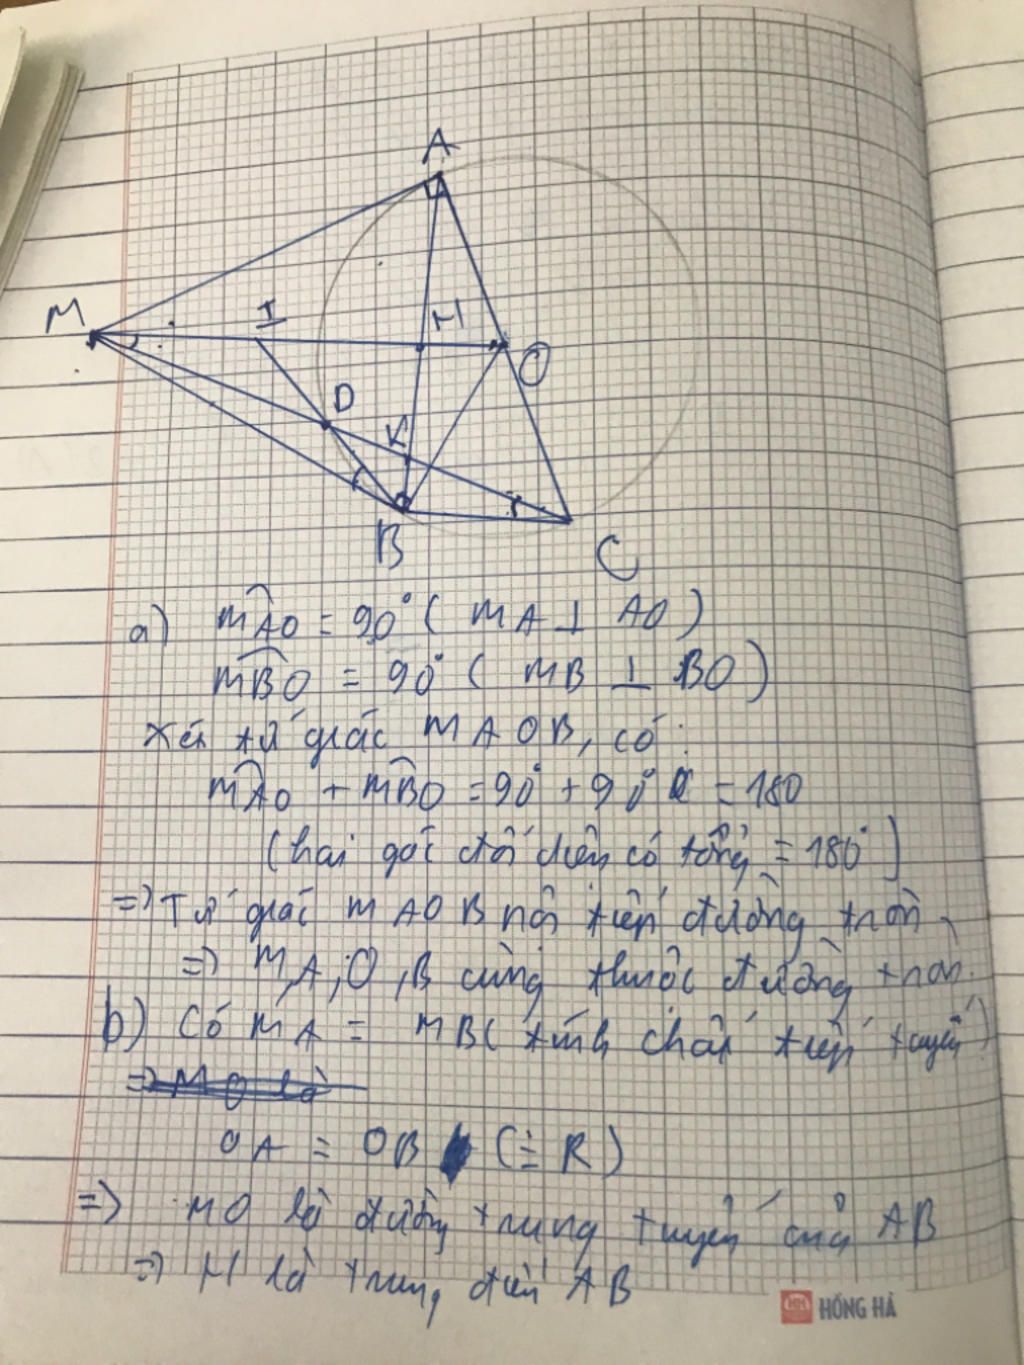 A
M
I
H
O
D
K
B
C
a) MAO = 90° ( MA ⊥ AO )
MBO = 90° ( MB ⊥ BO )
Xét tứ giác MAOB, có:
MAO + MBO = 90° + 90° = 180
(hai góc đối diện có tổng = 180°)
=> Tứ giác MAOB nội tiếp đường tròn
=> M, A, O, B cùng thuộc đường tròn.
b) Có MA = MB ( tính chất tiếp tuyến )
=> MO là
OA = OB (= R)
=> MO là đường trung tuyến của AB
=> H là trung điểm AB
HH HỒNG HÀ